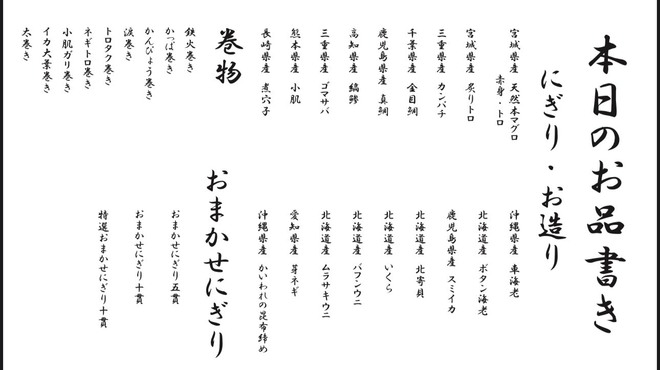 本日のお品書き
にぎり・お造り
宮城県産 天然本マグロ
赤身・トロ
宮城県産 炙りトロ
三重県産 カンパチ
千葉県産 金目鯛
鹿児島県産 真鯛
高知県産 縞鯵
三重県産 ゴマサバ
熊本県産 小肌
長崎県産 煮穴子
沖縄県産 車海老
北海道産 ボタン海老
鹿児島県産 スミイカ
北海道産 北寄貝
北海道産 いくら
北海道産 バフンウニ
北海道産 ムラサキウニ
愛知県産 芽ネギ
沖縄県産 かいわれの昆布締め
巻物
鉄火巻き
かっぱ巻き
かんぴょう巻き
涙巻き
トロタク巻き
ネギトロ巻き
小肌ガリ巻き
イカ大葉巻き
太巻き
おまかせにぎり
おまかせにぎり五貫
おまかせにぎり十貫
特選おまかせにぎり十貫